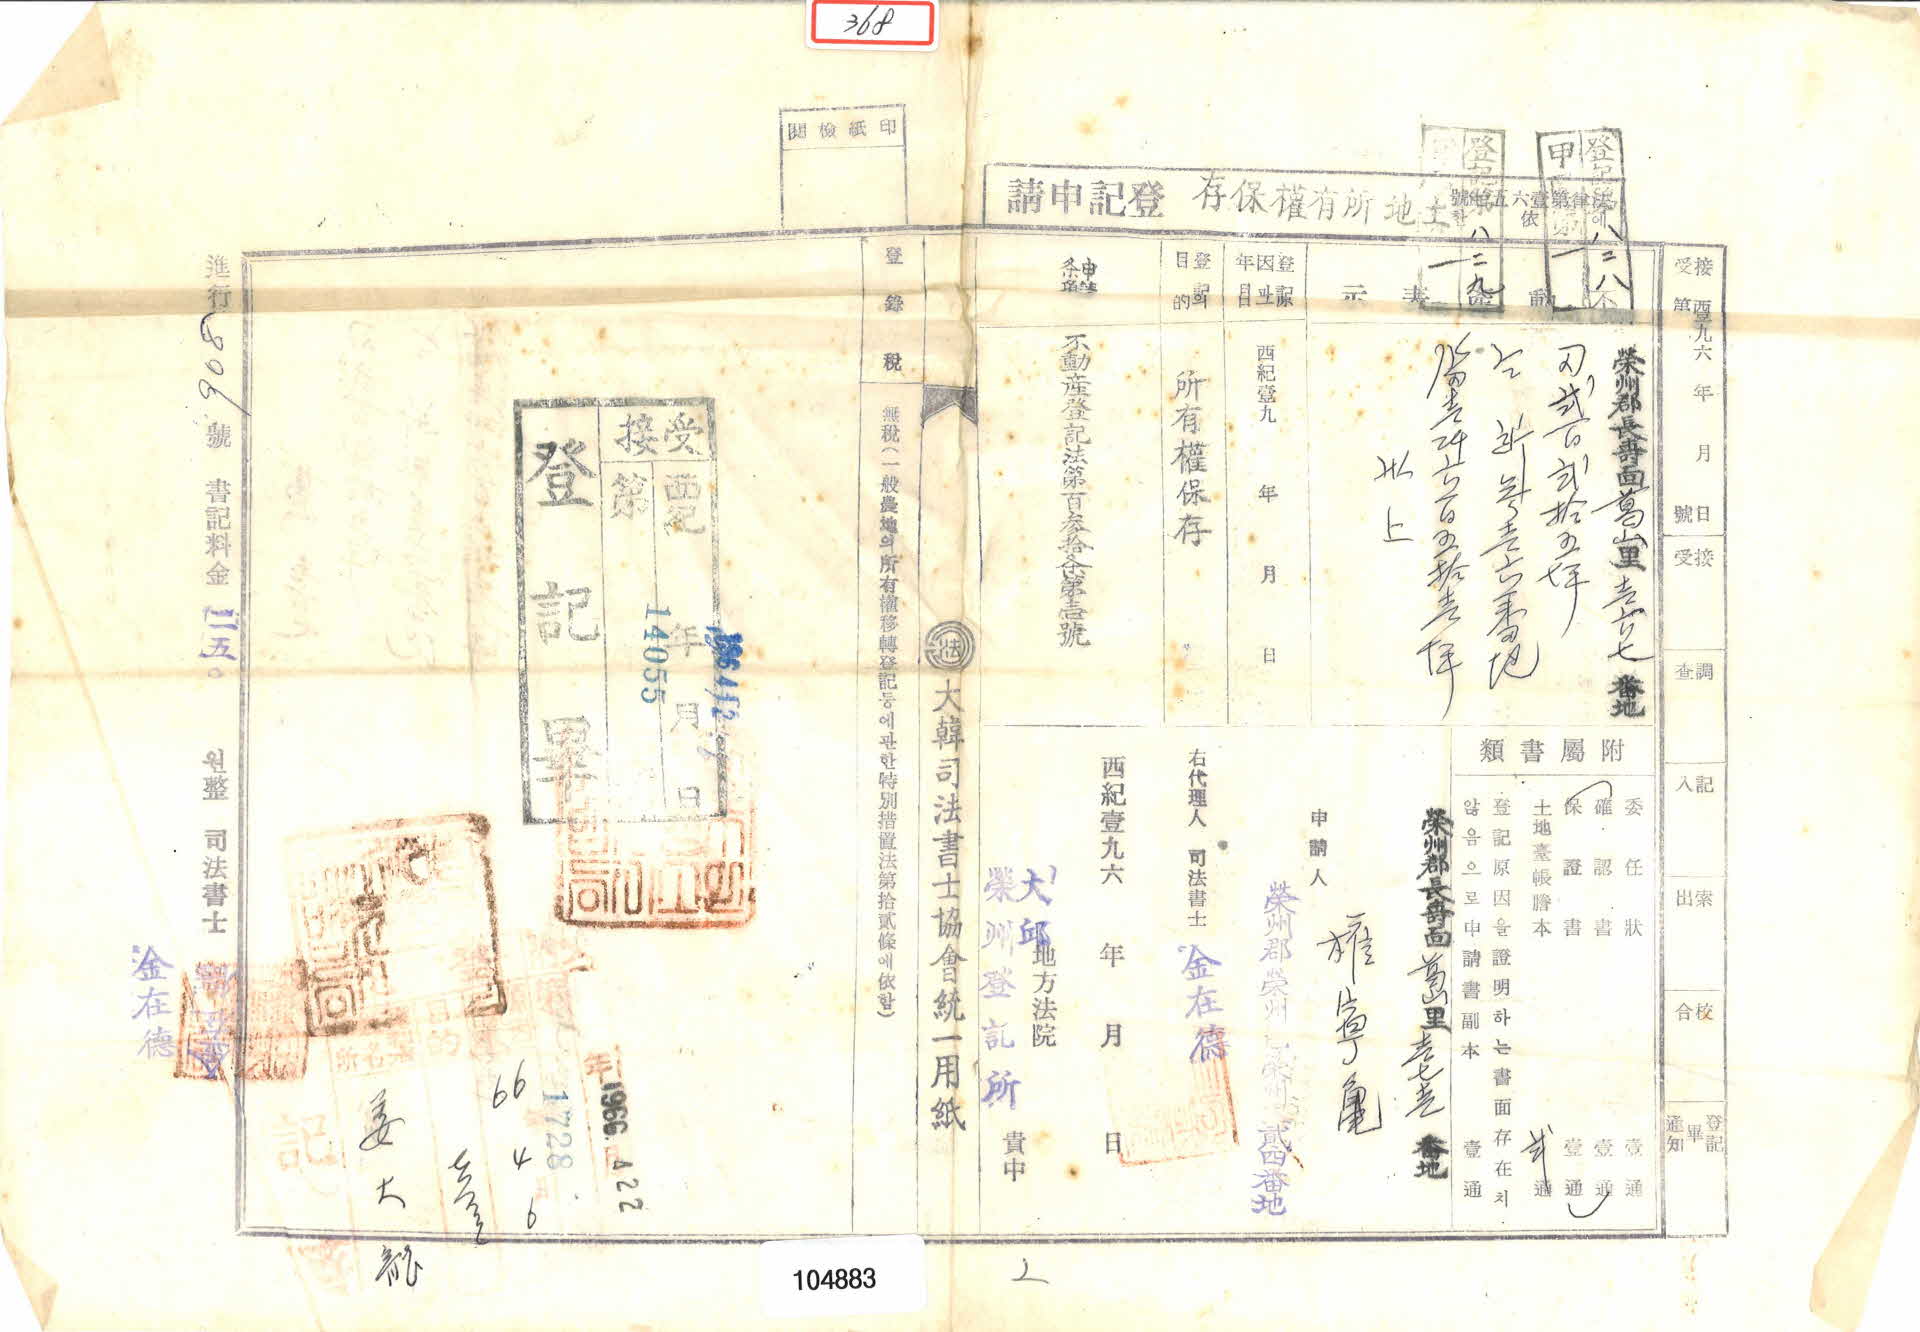 368
印紙檢閱
法律第壹六五七號에依한
土地所有權保存登記申請
登記第八二八不
甲
登記第八二九
接受 西紀壹九六 年 月 日
第 號
接受
調査
記入
索出
校合
登記畢通知
榮州郡長壽面葛山里壹六七番地
田 貳百貳拾五坪
仝 所 壹六番地
畓 壹仟六百五拾壹坪
以上
登記原因과年月日
西紀壹九 年 月 日
登記의目的
所有權保存
申請条項
不動產登記法第百參拾条第壹號
附屬書類
委任狀 壹通
確認書 壹通
保證書 壹通
土地臺帳謄本 貳通
登記原因을證明하는書面存在치
않음으로申請書副本 壹通
榮州郡長壽面葛山里壹七壹番地
申請人 權寧龜
榮州郡榮州邑榮州里貳四番地
右代理人 司法書士 金在德
西紀壹九六 年 月 日
大邱地方法院
榮州登記所 貴中
大韓司法書士協會統一用紙
登錄稅
無稅(一般農地의所有權移轉登記등에관한特別措置法第拾貳條에依함)
接受
西紀 年 月 日
第 14055
登記畢
1966.4.22
1728
66 4 6
姜大龍
進行 806 號 書記料金 一二五〇 원整 司法書士
金在德
104883
2